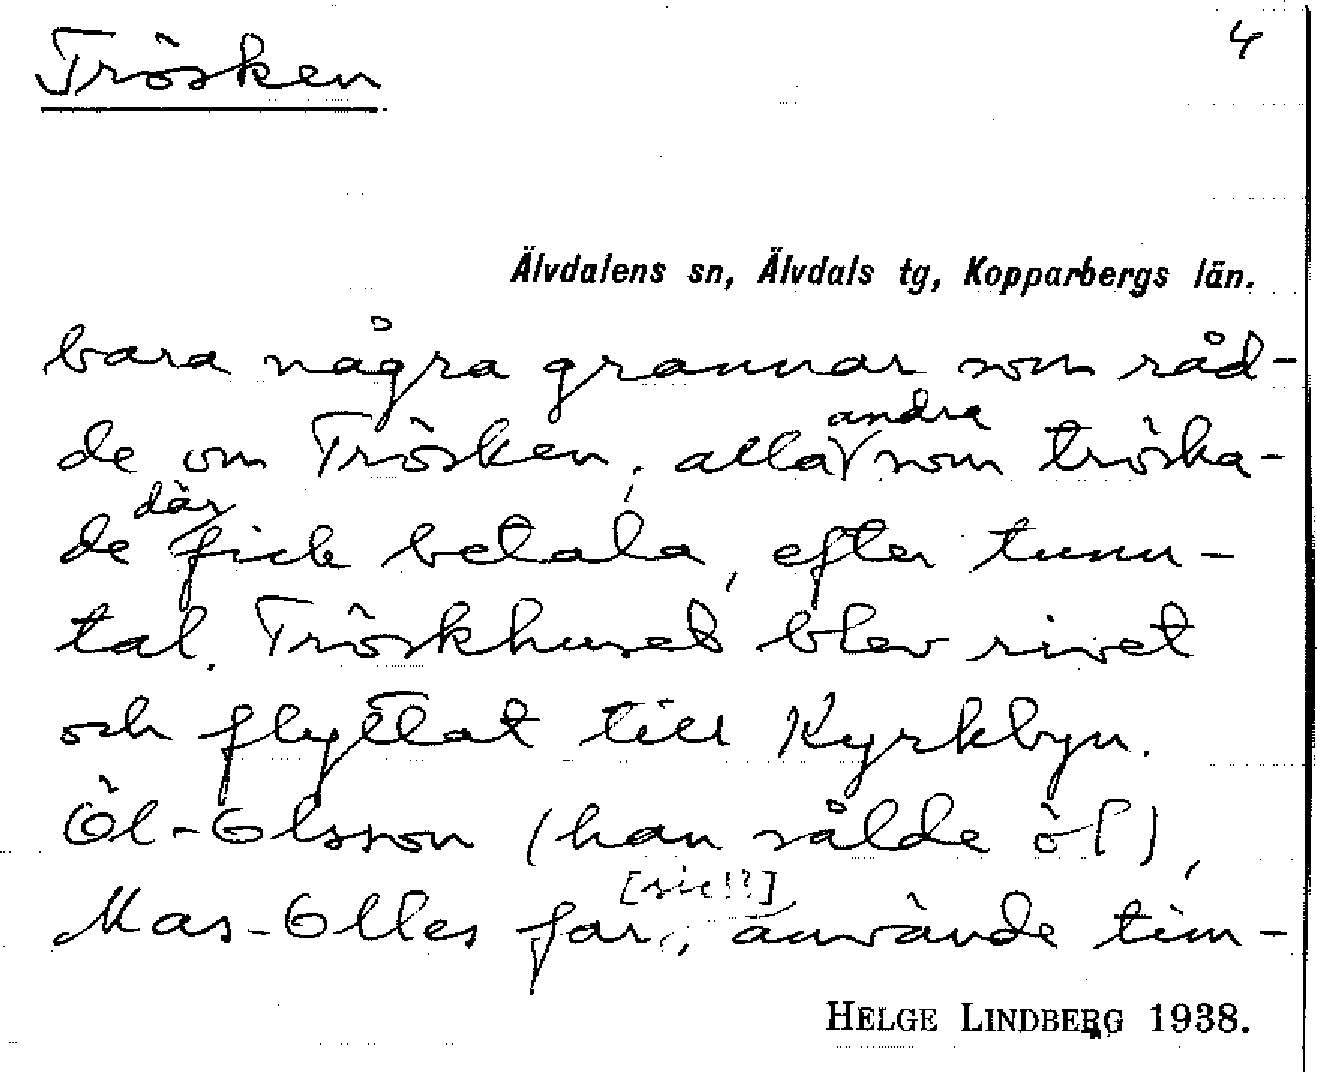 Trösken
4
Älvdalens sn, Älvdals tg, Kopparbergs län.
bara några grannar som råd-
de om Trösken; alla andra som tröska-
de där fick betala, efter tunn-
tal. Tröskhuset blev rivet
och flyttat till Kyrkbyn.
Öl-Olsson (han sålde öl),
Mas-Olles far, [sic!?] använde tim-
HELGE LINDBERG 1938.